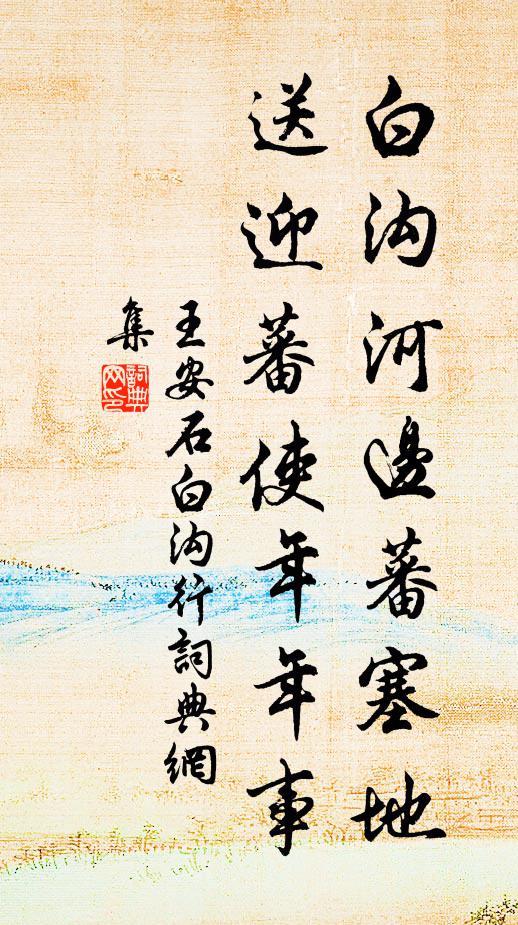 白沟河邊蕃塞地
送迎蕃使年年事
王安石白沟行詞典網
集
詞典
网印